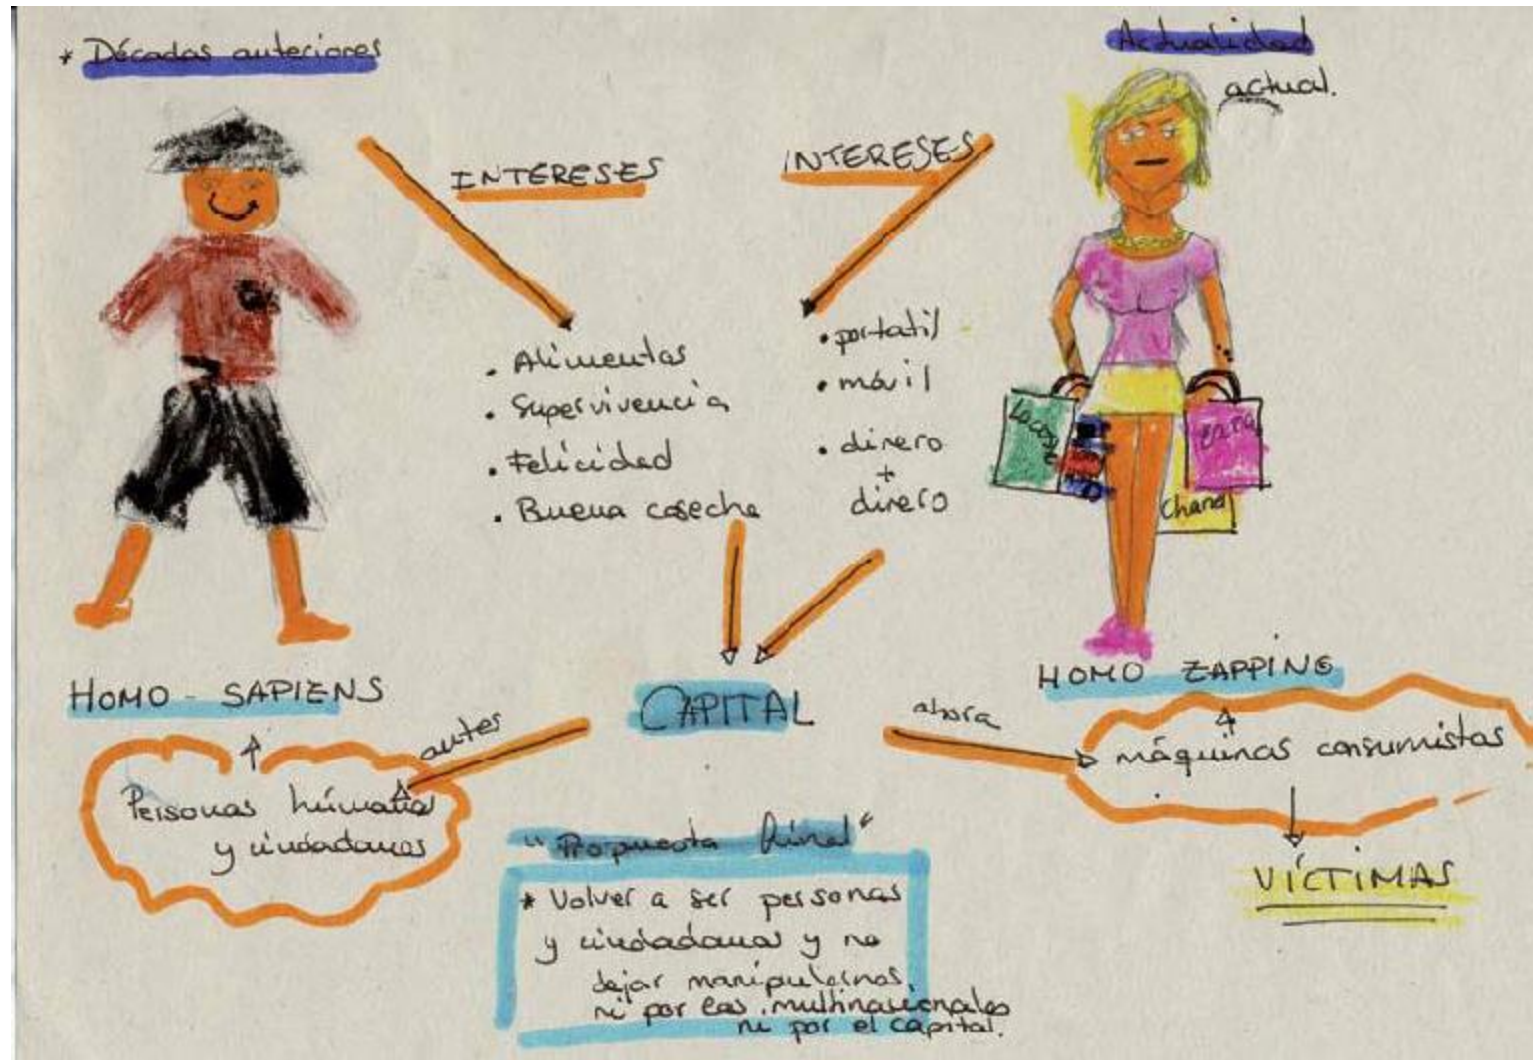 * Décadas anteriores
Actualidad
actual.
INTERESES
INTERESES
• Alimentos
• Supervivencia
• Felicidad
• Buena cosecha
• portatil
• móvil
• dinero
+
dinero
Lacoste
Zara
Chanel
HOMO - SAPIENS
CAPITAL
HOMO ZAPPING
antes
ahora
Personas húmanas
y ciudadanas
máquinas consumistas
VÍCTIMAS
"Propuesta final"
* Volver a ser personas
y ciudadanas y no
dejar manipularnos,
ni por las multinacionales
ni por el capital.